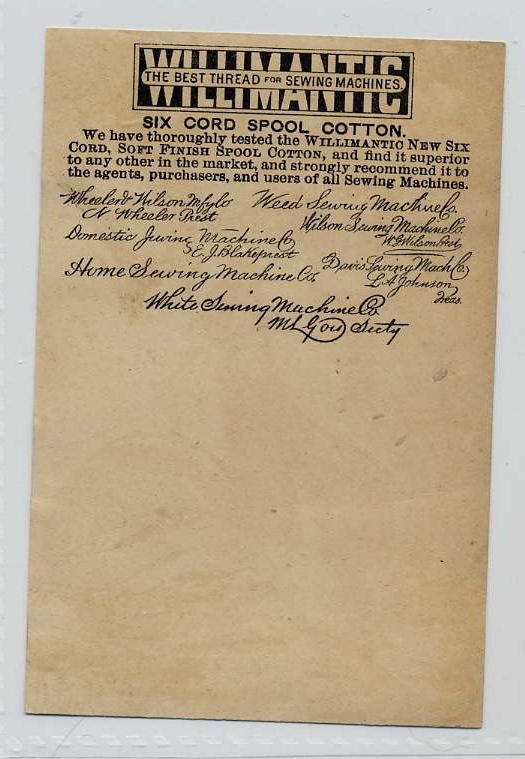 WILLIMANTIC
THE BEST THREAD FOR SEWING MACHINES.
SIX CORD SPOOL COTTON.
We have thoroughly tested the WILLIMANTIC NEW SIX
CORD, SOFT FINISH SPOOL COTTON, and find it superior
to any other in the market, and strongly recommend it to
the agents, purchasers, and users of all Sewing Machines.
Wheeler & Wilson Mfg Co
N Wheeler Prest
Weed Sewing Machine Co.
Wilson Sewing Machine Co.
W.G. Wilson Prest
Domestic Sewing Machine Co
E. J. Blake prest
Davis Sewing Mach Co.
L A Johnson
Treas.
Home Sewing Machine Co.
White Sewing Machine Co.
Secty